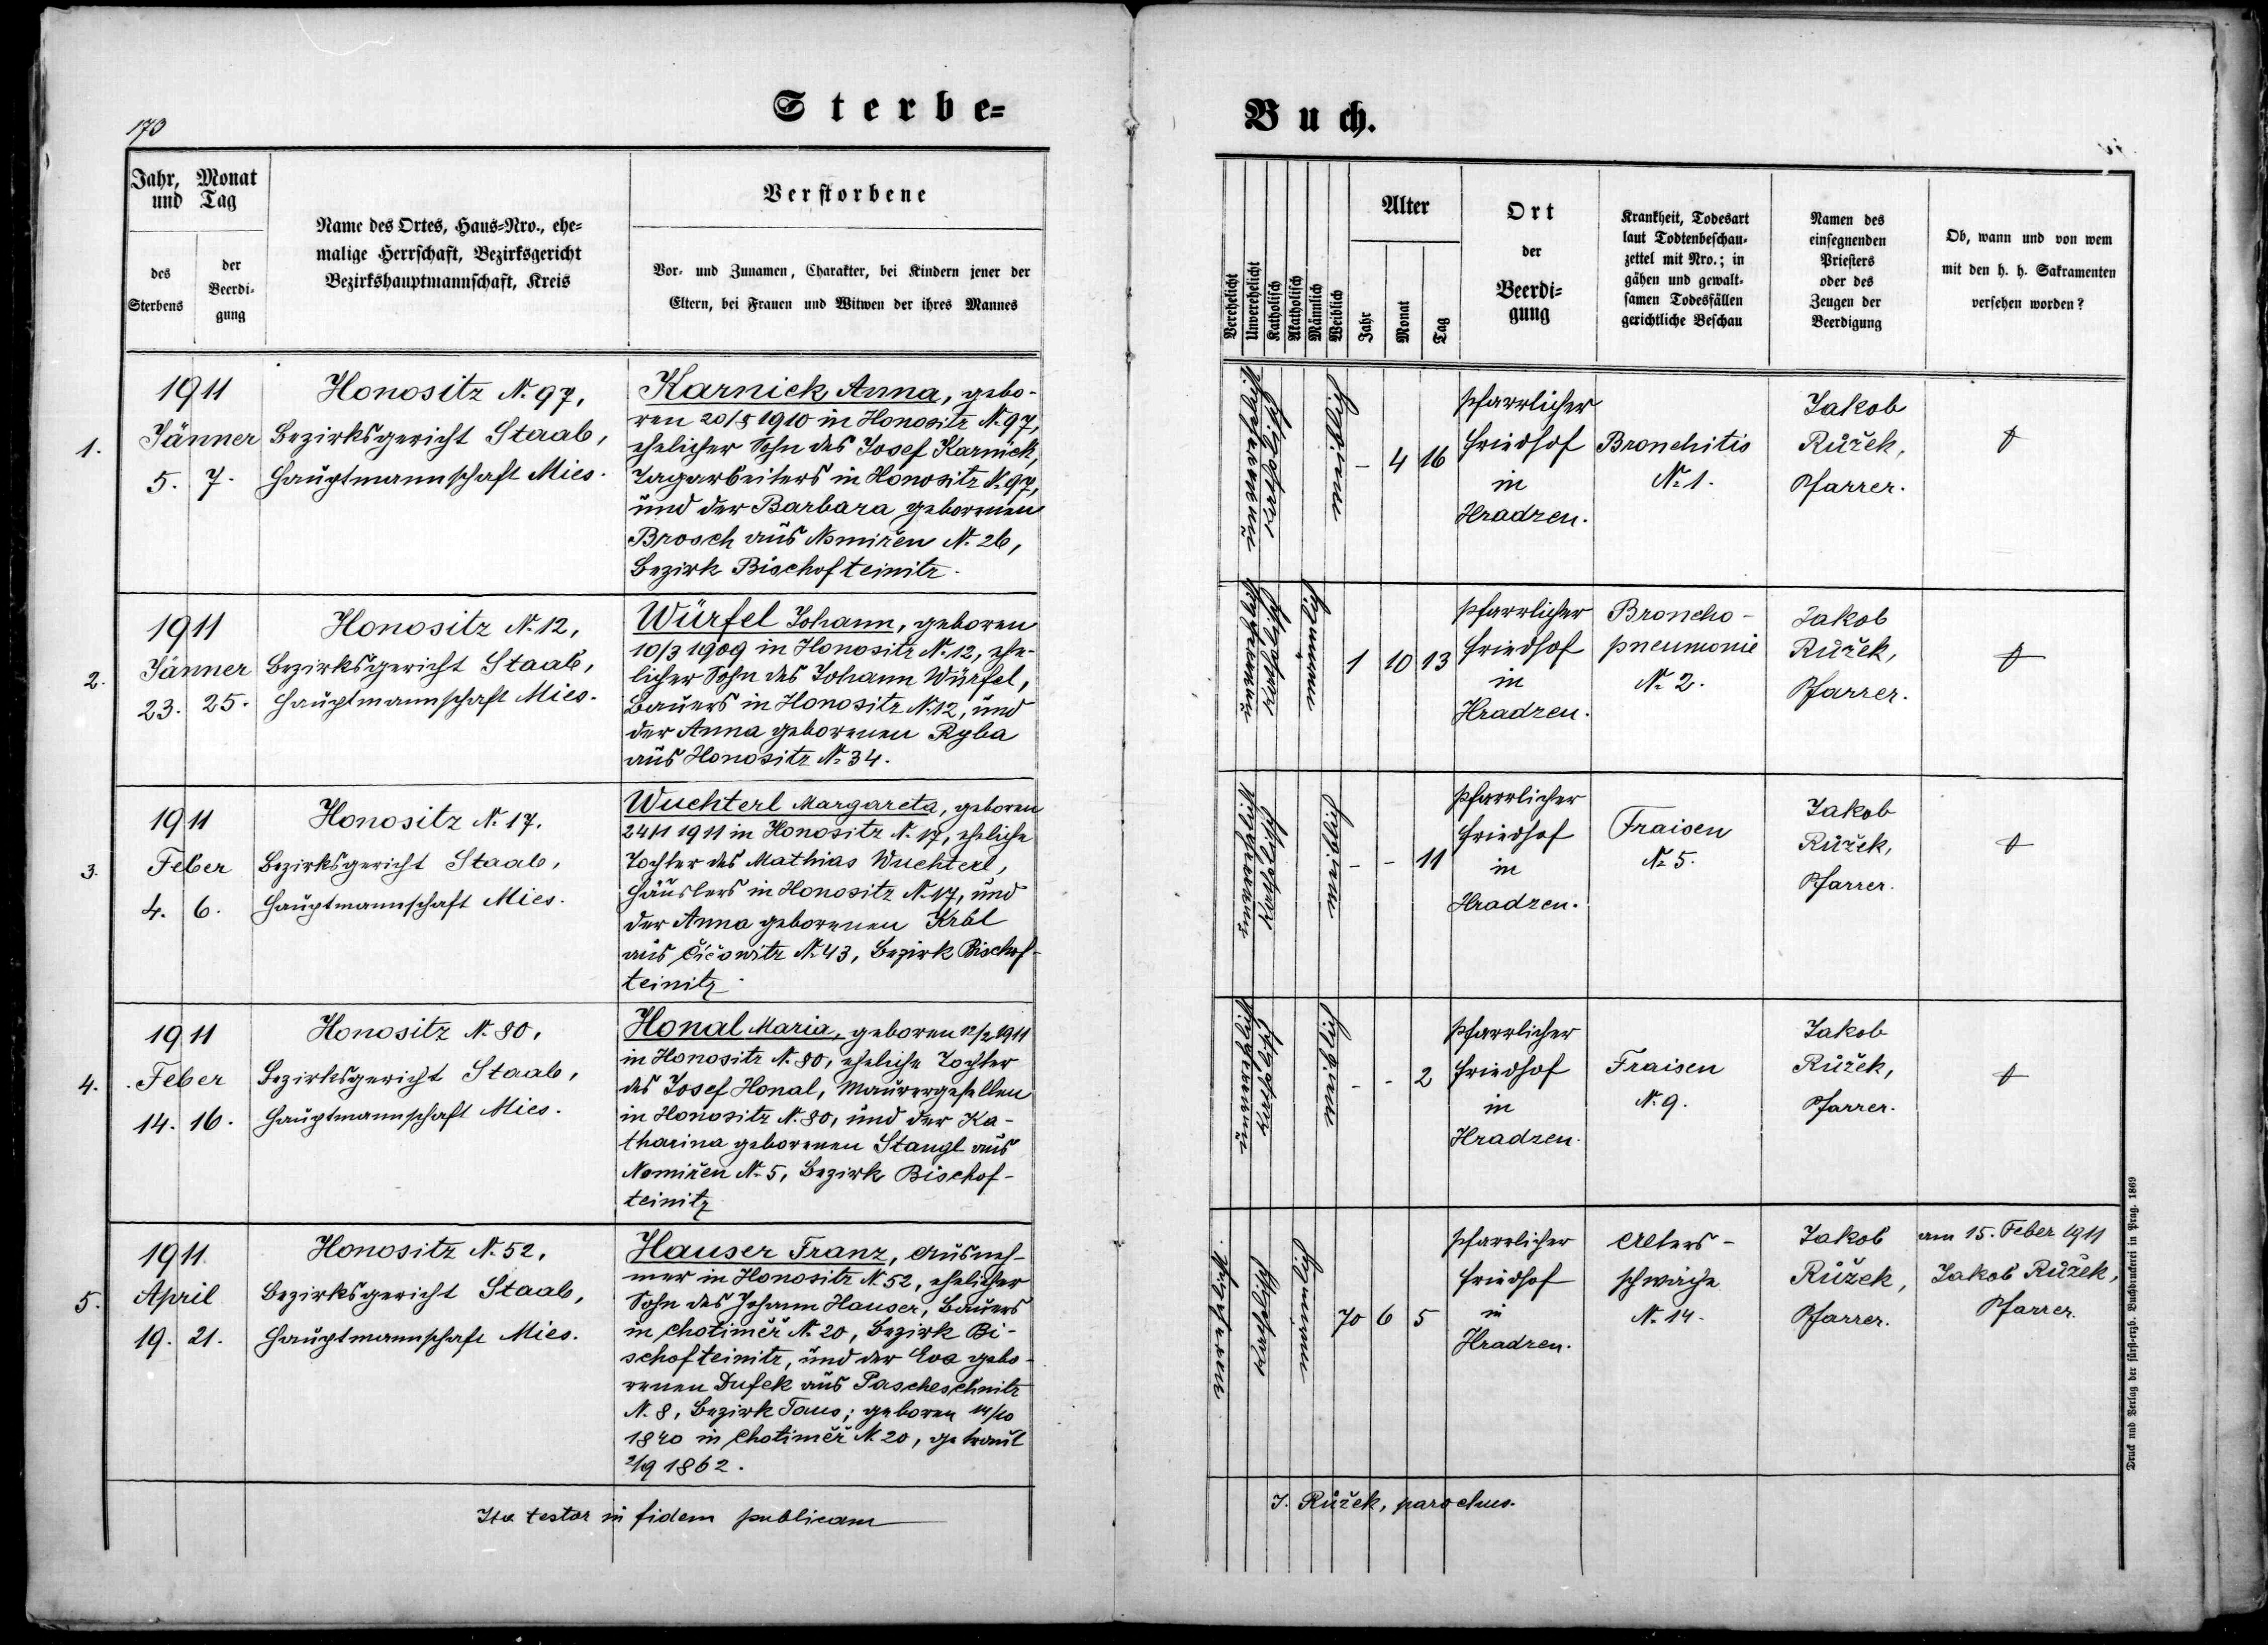 173
Sterbe=
Buch.
Jahr, Monat
und Tag
des
Sterbens
der
Beerdi-
gung
Name des Ortes, Haus-Nro., ehe-
malige Herrschaft, Bezirksgericht
Bezirkshauptmannschaft, Kreis
Verstorbene
Vor- und Zunamen, Charakter, bei Kindern jener der
Eltern, bei Frauen und Witwen der ihres Mannes
Verehelicht
Unverehelicht
Katholisch
Akatholisch
Männlich
Weiblich
Alter
Jahr
Monat
Tag
Ort
der
Beerdi-
gung
Krankheit, Todesart
laut Todtenbeschau-
zettel mit Nro.; in
gähen und gewalt-
samen Todesfällen
gerichtliche Beschau
Namen des
einsegnenden
Priesters
oder des
Zeugen der
Beerdigung
Ob, wann und von wem
mit den h. h. Sakramenten
versehen worden?
1.
1911
Jänner
5. 7.
Honositz N. 97,
Bezirksgericht Staab,
Hauptmannschaft Mies.
Karnick Anna, gebo-
ren 20/8 1910 in Honositz N. 97,
ehelicher Sohn des Josef Karnick,
Tagarbeiters in Honositz N. 97,
und der Barbara geborenen
Brosch aus Nemiřen N. 26,
Bezirk Bischofteinitz.
unverehelicht
katholisch
weiblich
- 4 16
pfarrlicher
Friedhof
in
Hradzen.
Bronchitis
N. 1.
Jakob
Růžek,
Pfarrer.
2.
1911
Jänner
23. 25.
Honositz N. 12,
Bezirksgericht Staab,
Hauptmannschaft Mies.
Würfel Johann, geboren
10/3 1909 in Honositz N. 12, ehe-
licher Sohn des Johann Würfel,
Bauers in Honositz N. 12, und
der Anna geborenen Ryba
aus Honositz N. 34.
unverehelicht
katholisch
männlich
1 10 13
pfarrlicher
Friedhof
in
Hradzen.
Broncho-
pneumonie
N. 2.
Jakob
Růžek,
Pfarrer.
3.
1911
Feber
4. 6.
Honositz N. 17.
Bezirksgericht Staab,
Hauptmannschaft Mies.
Wuchterl Margareta, geboren
24/1 1911 in Honositz N. 17, eheliche
Tochter des Mathias Wuchterl,
Häuslers in Honositz N. 17, und
der Anna geborenen Krbl
aus Čičowitz N. 43, Bezirk Bischof-
teinitz.
unverehelicht
katholisch
weiblich
- - 11
pfarrlicher
Friedhof
in
Hradzen.
Fraisen
N. 5.
Jakob
Růžek,
Pfarrer.
4.
1911
Feber
14. 16.
Honositz N. 80,
Bezirksgericht Staab,
Hauptmannschaft Mies.
Honal Maria, geboren 12/2 1911
in Honositz N. 80, eheliche Tochter
des Josef Honal, Maurergesellen
in Honositz N. 80, und der Ka-
tharina geborenen Stangl aus
Nemiřen N. 5, Bezirk Bischof-
teinitz
unverehelicht
katholisch
weiblich
- - 2
pfarrlicher
Friedhof
in
Hradzen.
Fraisen
N. 9.
Jakob
Růžek,
Pfarrer.
5.
1911
April
19. 21.
Honositz N. 52,
Bezirksgericht Staab,
Hauptmannschaft Mies.
Hauser Franz, Ausneh-
mer in Honositz N. 52, ehelicher
Sohn des Johann Hauser, Bauers
in Chotiměř N. 20, Bezirk Bi-
schofteinitz, und der Eva gebo-
renen Dufek aus Pascheschnitz
N. 8, Bezirk Taus; geboren 14/10
1840 in Chotiměř N. 20, getraut
2/9 1862.
verehelicht
katholisch
männlich
70 6 5
pfarrlicher
Friedhof
in
Hradzen.
Alters-
schwäche
N. 14.
Jakob
Růžek,
Pfarrer.
am 15. Feber 1911
Jakob Růžek,
Pfarrer.
Ita testor in fidem publicam
J. Růžek, parochus.
Druck und Verlag der fürst-erzb. Buchdruckerei in Prag. 1869